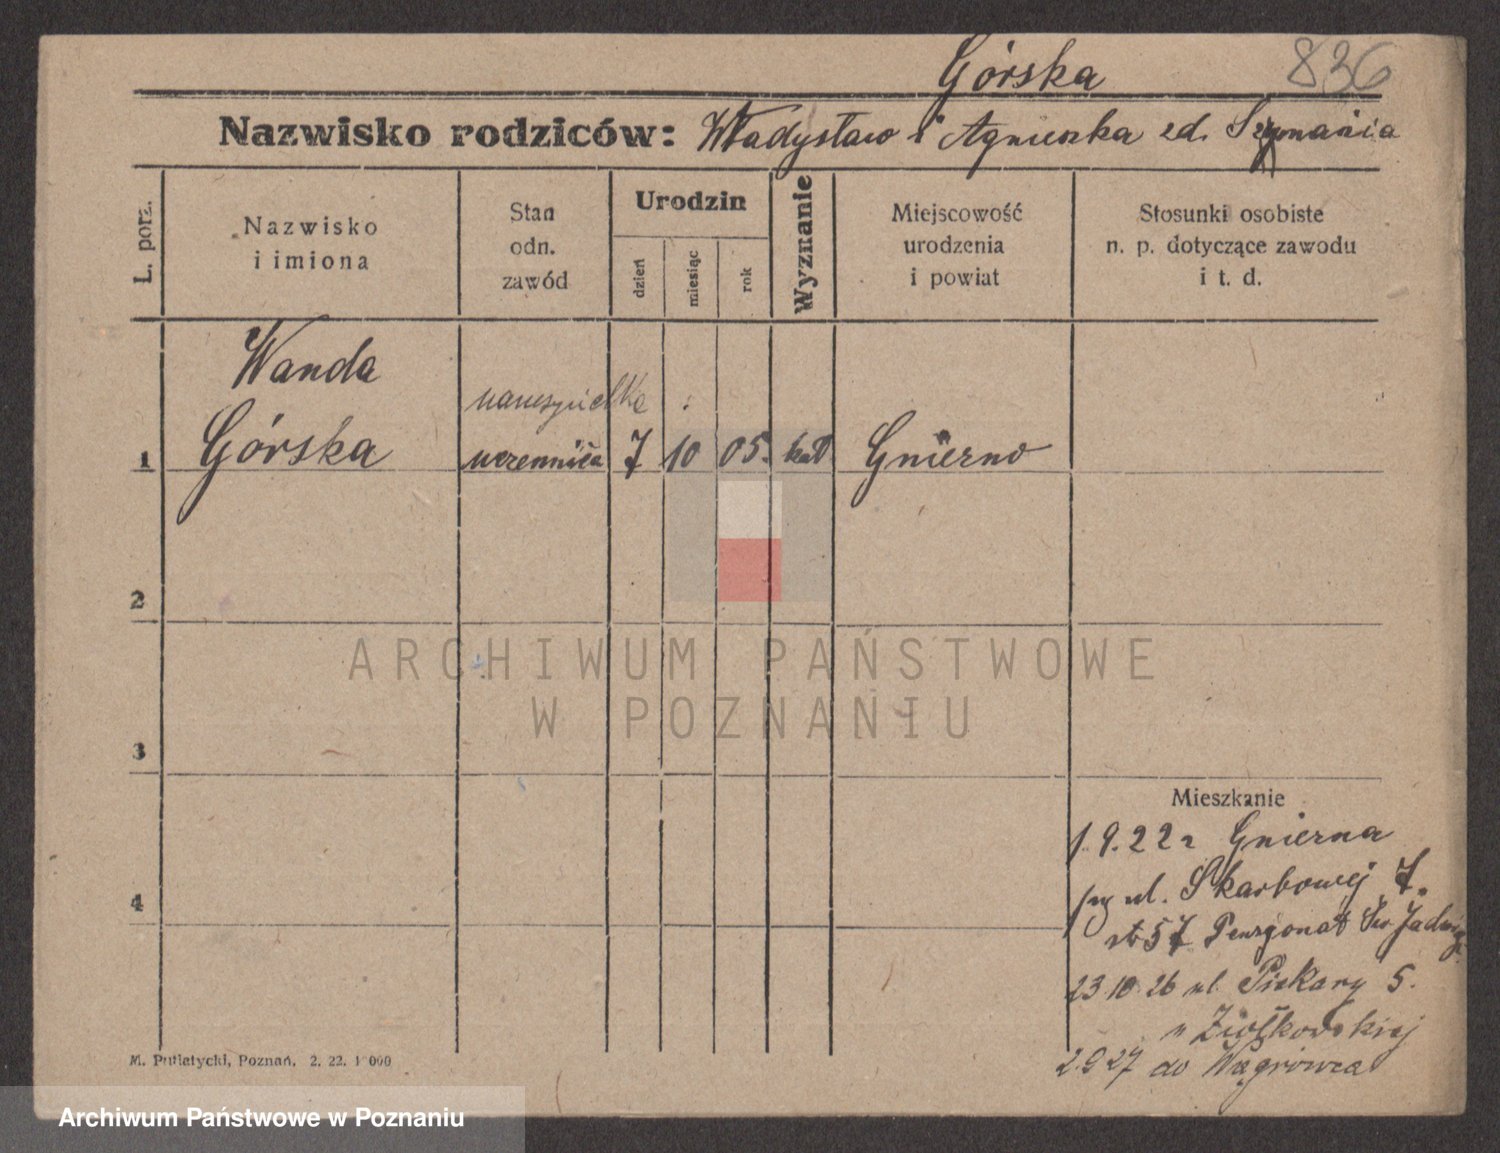 Górska 836
Nazwisko rodziców: Władysław i Agnieszka zd.
L. porz.
Nazwisko
i imiona
Stan
odn.
zawód
Urodzin
dzień
miesiąc
rok
Wyznanie
Miejscowość
urodzenia
i powiat
Stosunki osobiste
n. p. dotyczące zawodu
i t. d.
Wanda
nauczycielka
1 Górska uczennica 7 10 05. kat Gniezno
2
3
4
Mieszkanie
1.9.22 r Gniezna
przy ul. Skarbowej 7.
57 Pensjonat Św Jadwigi
23 10 26 ul. Piekary 5.
u Ziółkowskiej
2 9 27 do Wągrowca
M. Putiatycki, Poznań. 2. 22. 1 000
ARCHIWUM PAŃSTWOWE
W POZNANIU
Archiwum Państwowe w Poznaniu